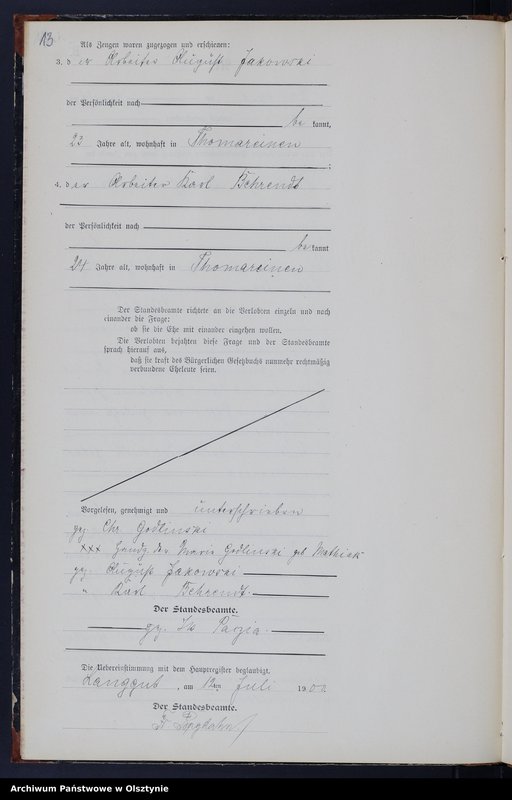 13
Als Zeugen waren zugezogen und erschienen:
3. der Arbeiter August Jakowski
der Persönlichkeit nach
be kannt,
23 Jahre alt, wohnhaft in Thomareinen
;
4. der Arbeiter Karl Behrendt
der Persönlichkeit nach
be kannt
24 Jahre alt, wohnhaft in Thomareinen
Der Standesbeamte richtete an die Verlobten einzeln und nach
einander die Frage:
ob sie die Ehe mit einander eingehen wollen.
Die Verlobten bejahten diese Frage und der Standesbeamte
sprach hierauf aus,
daß sie kraft des Bürgerlichen Gesetzbuchs nunmehr rechtmäßig
verbundene Eheleute seien.
Vorgelesen, genehmigt und unterschrieben
gez. Chr Godlinski
xxx Handz. der Marie Godlinski geb Mathiak
gez. August Jakowski
" Karl Behrendt.
Der Standesbeamte.
gez.
Die Uebereinstimmung mit dem Hauptregister beglaubigt.
Langgut, am 12ten Juli 190
Der Standesbeamte.
Archiwum Państwowe w Olsztynie